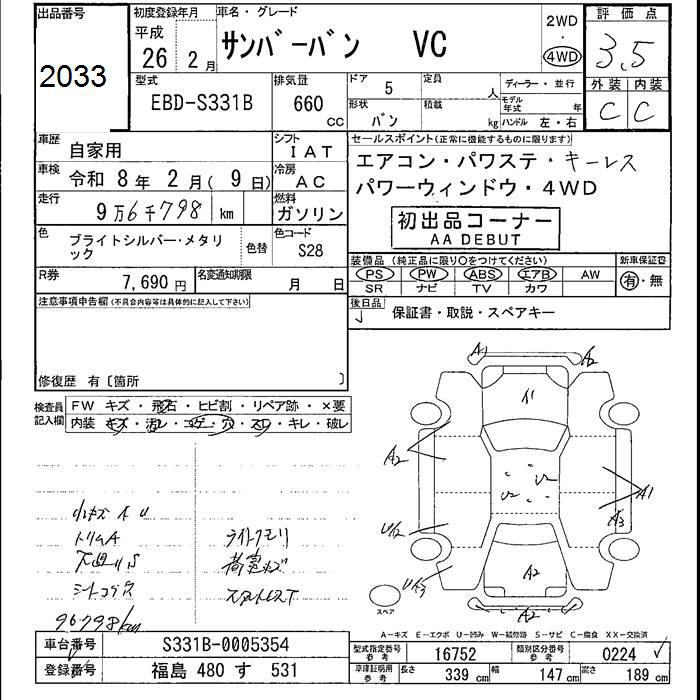 出品番号 初度登録年月 車名・グレード 評価点
2033 平成 26 2月 サンバーバン VC 2WD・4WD 3.5
型式 排気量 ドア 定員 ディーラー・並行 外装 内装
EBD-S331B 660 CC 5 人 モデル年式 年 C C
形状 バン 積載 kg ハンドル 左・右
車歴 自家用 シフト IAT セールスポイント(正常に機能するものに限ります)
車検 令和 8年 2月(9日) 冷房 AC エアコン・パワステ・キーレス
走行 9万6千798 km 燃料 ガソリン パワーウィンドウ・4WD
初出品コーナー
AA DEBUT
色 ブライトシルバー・メタリック 色替 色コード S28
装備品(純正品に限り〇をつけてください) 新車保証書
PS PW ABS エアB AW 有・無
SR ナビ TV カワ
R券 7,690円 名変通知期限 月 日
後日品 保証書・取説・スペアキー
注意事項申告欄(不具合内容等は具体的に記入して下さい)
修復歴 有〔箇所 〕
検査員記入欄 FW キズ・飛石・ヒビ割・リペア跡・×要
内装 キズ・汚レ・コゲ・穴・スレ・キレ・破レ
A1 A2
A2 A1
A3
U2
A2
A2
小キズ A U
トリムA
シートコゲ穴
96798km
ライトクモリ
荷室キズ
スペア
A-キズ E-エクボ U-凹み W-補修跡 S-サビ C-腐食 XX-交換済
車台番号 S331B-0005354 型式指定番号 参考 16752 類別区分番号 参考 0224
登録番号 福島 480 す 531 車庫証明用 参考 長さ 339 cm 幅 147 cm 高さ 189 cm